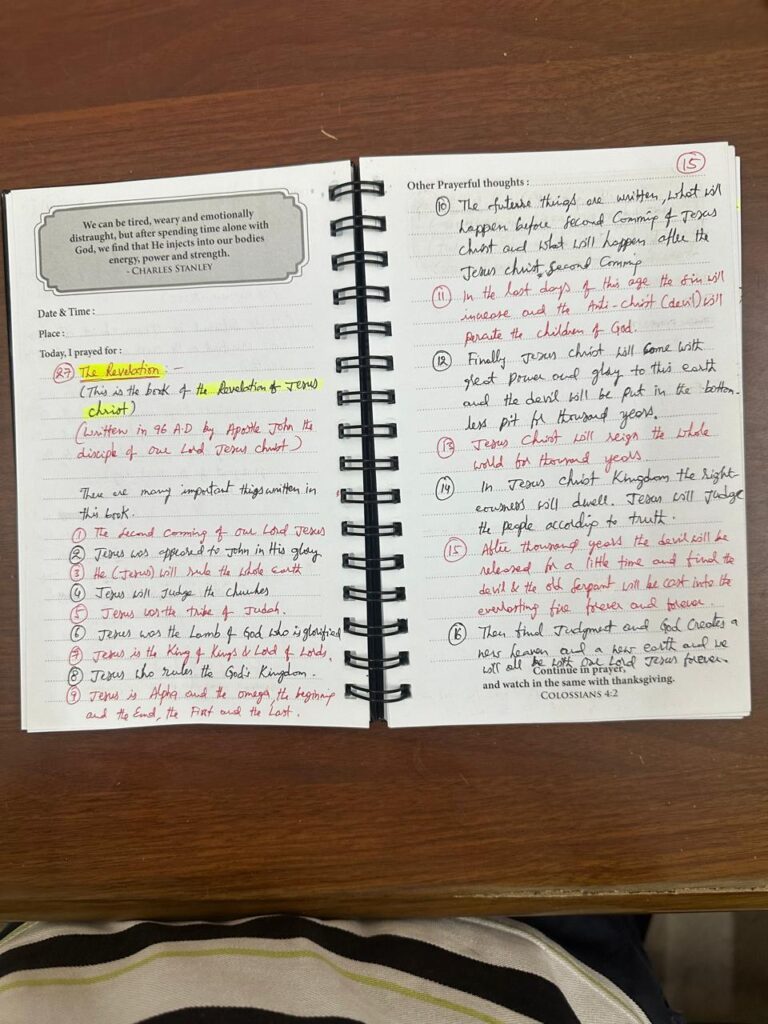 We can be tired, weary and emotionally
distraught, but after spending time alone with
God, we find that He injects into our bodies
energy, power and strength.
- CHARLES STANLEY
Date & Time :
Place :
Today, I prayed for :
27 The Revelation :-
(This is the book of the Revelation of Jesus
christ)
(Written in 96 A.D by Apostle John the
disciple of our Lord Jesus christ)
There are many important things written in
this book.
1 The Second Comming of our Lord Jesus
2 Jesus was appeared to John in His glory
3 He (Jesus) will rule the whole earth
4 Jesus will Judge the churches
5 Jesus was the tribe of Judah.
6 Jesus was the Lamb of God who is glorified
7 Jesus is the King of Kings & Lord of Lords.
8 Jesus who rules the God's Kingdom.
9 Jesus is Alpha and the omega, the beginning
and the End, the First and the Last.
15
Other Prayerful thoughts :
10 The future things are written, what will
happen before Second Comming of Jesus
christ and what will happen after the
Jesus christ Second Comming
11 In the last days of this age the Sin will
increase and the Anti-christ (devil) will
persecute the children of God.
12 Finally Jesus christ will Come with
great Power and glory to this earth
and the devil will be put in the bottom-
less pit for thousand years.
13 Jesus Christ will reign the whole
world for thousand years.
14 In Jesus christ Kingdom the right-
eousness will dwell. Jesus will Judge
the people according to truth.
15 After thousand years the devil will be
released for a little time and find the
devil & the old Serpant will be cast into the
everlasting fire forever and forever.
16 Then final Judgment and God Creates a
new heaven and a new earth and we
will all be with our Lord Jesus forever.
Continue in prayer,
and watch in the same with thanksgiving.
COLOSSIANS 4:2